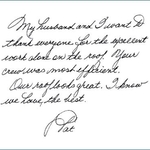 My husband and I want to
thank everyone for the excellent
work done on the roof. Your
crew was most efficient.
Our roof looks great. I know
we have the best.
Pat